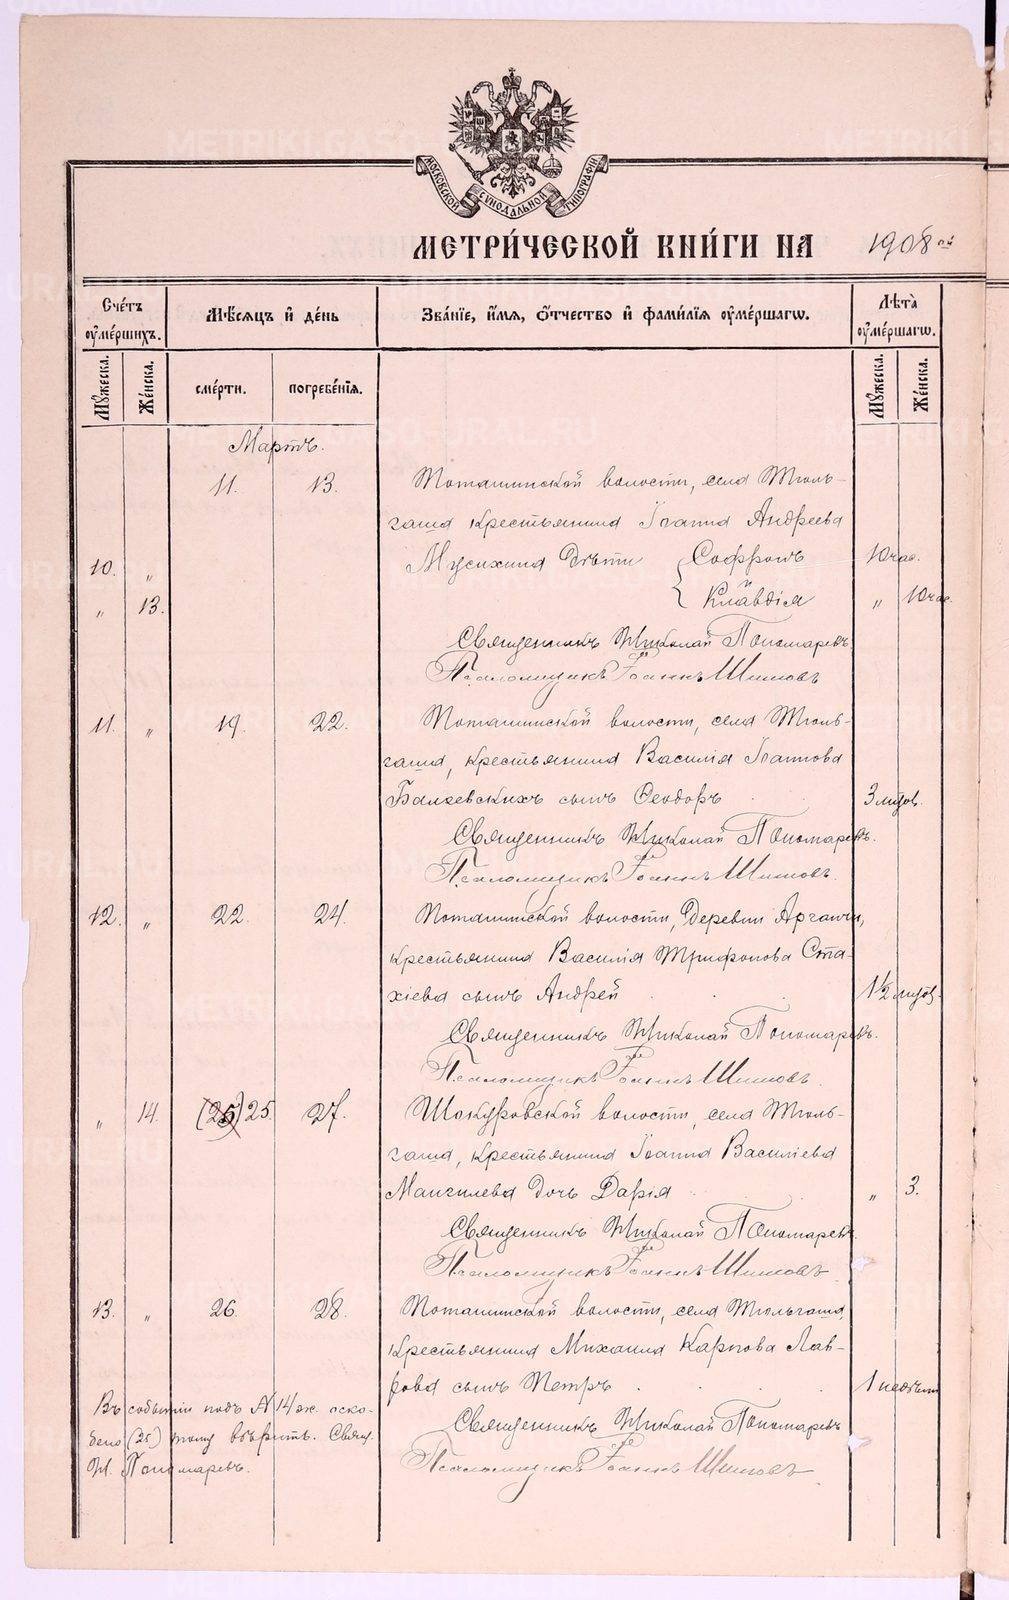 МОСКОВСКОЙ СѴНОДАЛЬНОЙ ТИПОГРАФІИ
МЕТРИ́ЧЕСКОЙ КНИ́ГИ НА 1908 ой
Сче́тъ оуме́ршихъ. Мѣ́сяцъ и де́нь Зва́нїе, и́мя, о́тчество и фами́лїя оуме́ршагѡ. Лѣта̀ оуме́ршагѡ.
Му́жеска. Же́нска. сме́рти. погребе́нїя. Му́жеска. Же́нска.
Мартъ.
11. 13. Поташинской волости, села Тюль-
гаша крестьянина Іоанна Андреева
10. " Мусихина дѣти Софронъ 10 час.
и
" 13. Клавдія " 10 час.
Священникъ Николай Пономаревъ
Псаломщикъ Іоаннъ Шишовъ
11. " 19. 22. Поташинской волости, села Тюль-
гаша, крестьянина Василія Іоаннова
сынъ Ѳеодоръ 3 мѣсяц.
Священникъ Николай Пономаревъ.
Псаломщикъ Іоаннъ Шишовъ.
12. " 22. 24. Поташинской волости, деревни
крестьянина Василія Трифонова Ста-
хіева сынъ Андрей 1 1/2 мѣсяц.
Священникъ Николай Пономаревъ.
Псаломщикъ Іоаннъ Шишовъ.
" 14. (25) 25 27. Шокуровской волости, села Тюль-
гаша, крестьянина Іоанна Василіева
Мангилева дочь Дарія " 3.
Священникъ Николай Пономаревъ.
Псаломщикъ Іоаннъ Шишовъ
13. " 26. 28. Поташинской волости, села Тюльгаша,
крестьянина Михаила Карпова Лав-
рова сынъ Петръ 1 недѣли
Въ событіи подъ № 14 ж. оско-
блено (25) тому вѣрить. Свящ.
Н. Пономаревъ.
Священникъ Николай Пономаревъ
Псаломщикъ Іоаннъ Шишовъ
METRIKI.GASO-URAL.RU